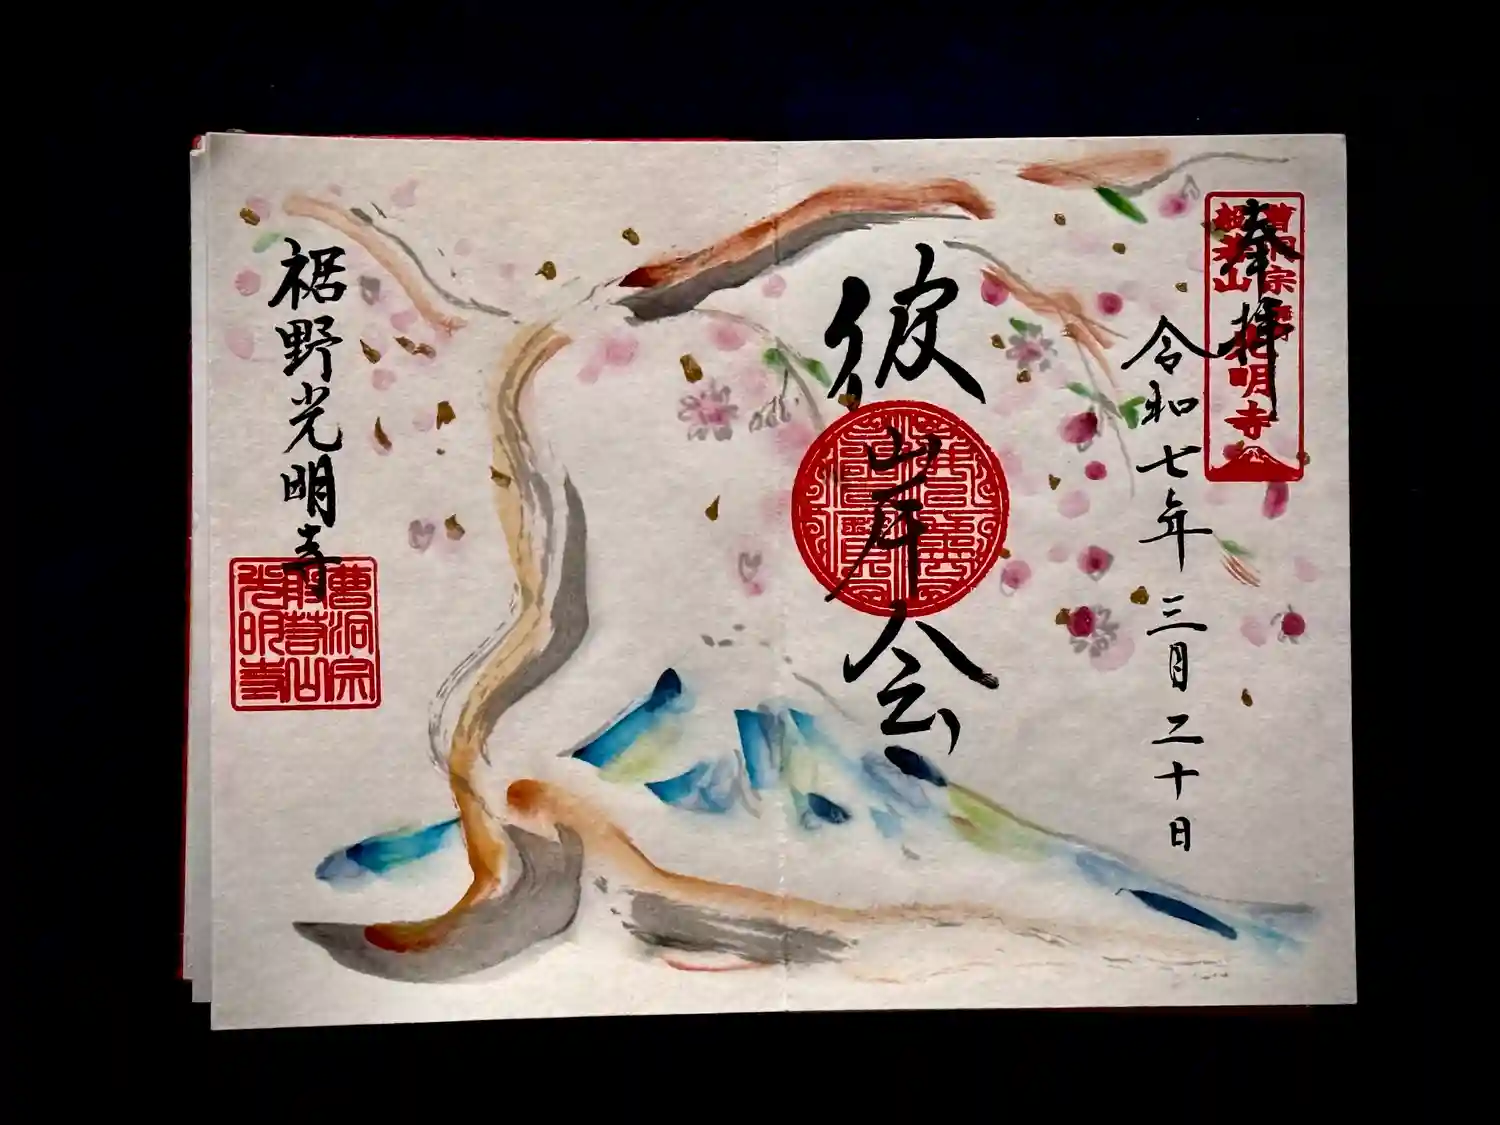 奉拝
曹洞宗
光明寺
令和七年三月二十日
彼岸会
裾野光明寺
曹洞宗
光明寺